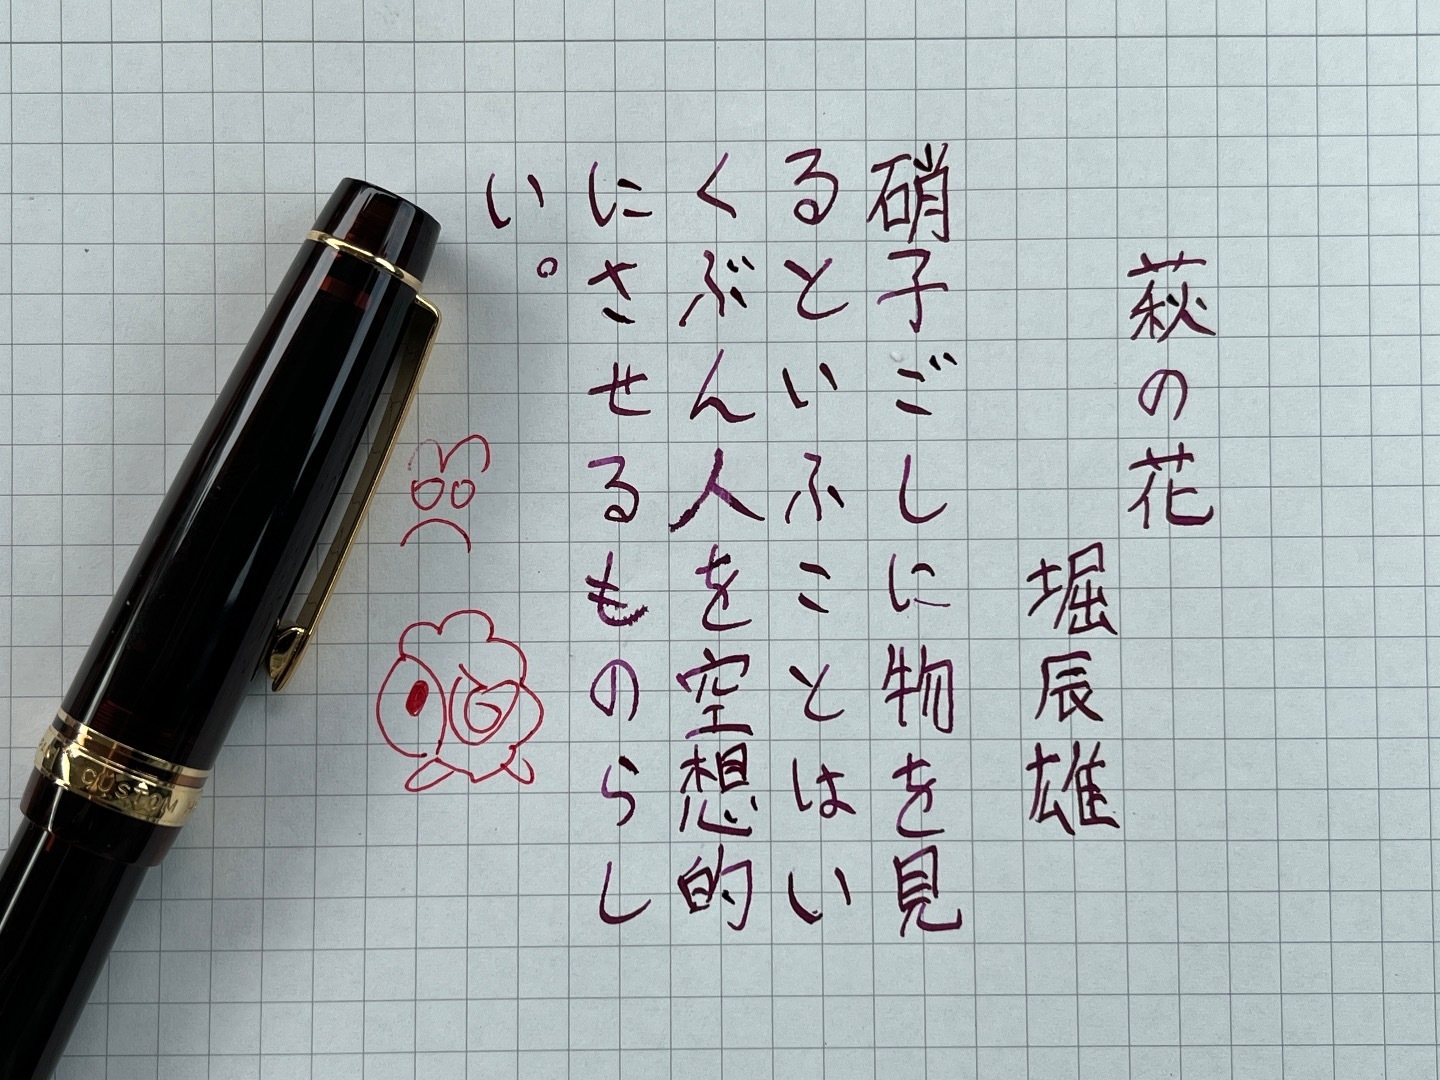 萩の花
堀辰雄
硝子ごしに物を見
るといふことはい
くぶん人を空想的
にさせるものらし
い。
CUSTOM